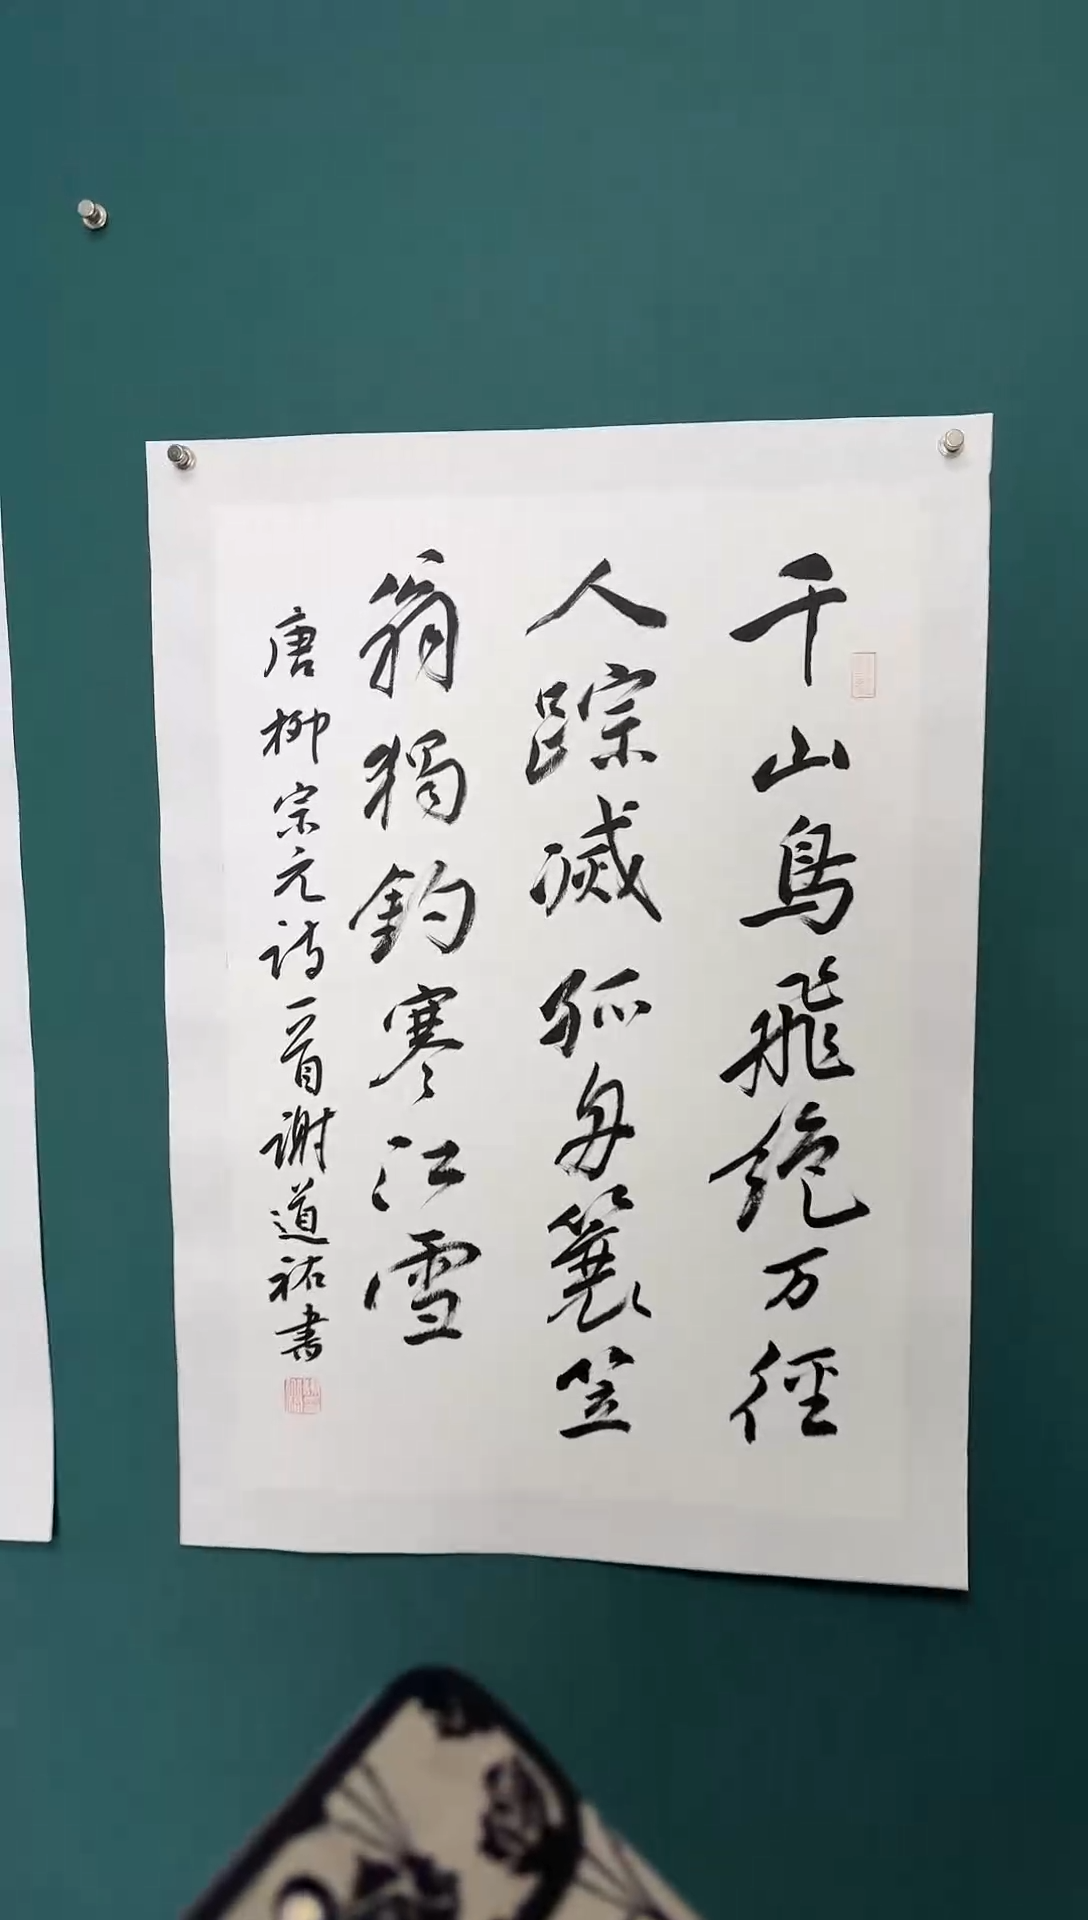 千山鳥飛絶万徑
人踪滅孤舟簑笠
翁獨釣寒江雪
唐柳宗元詩一首謝道祐書